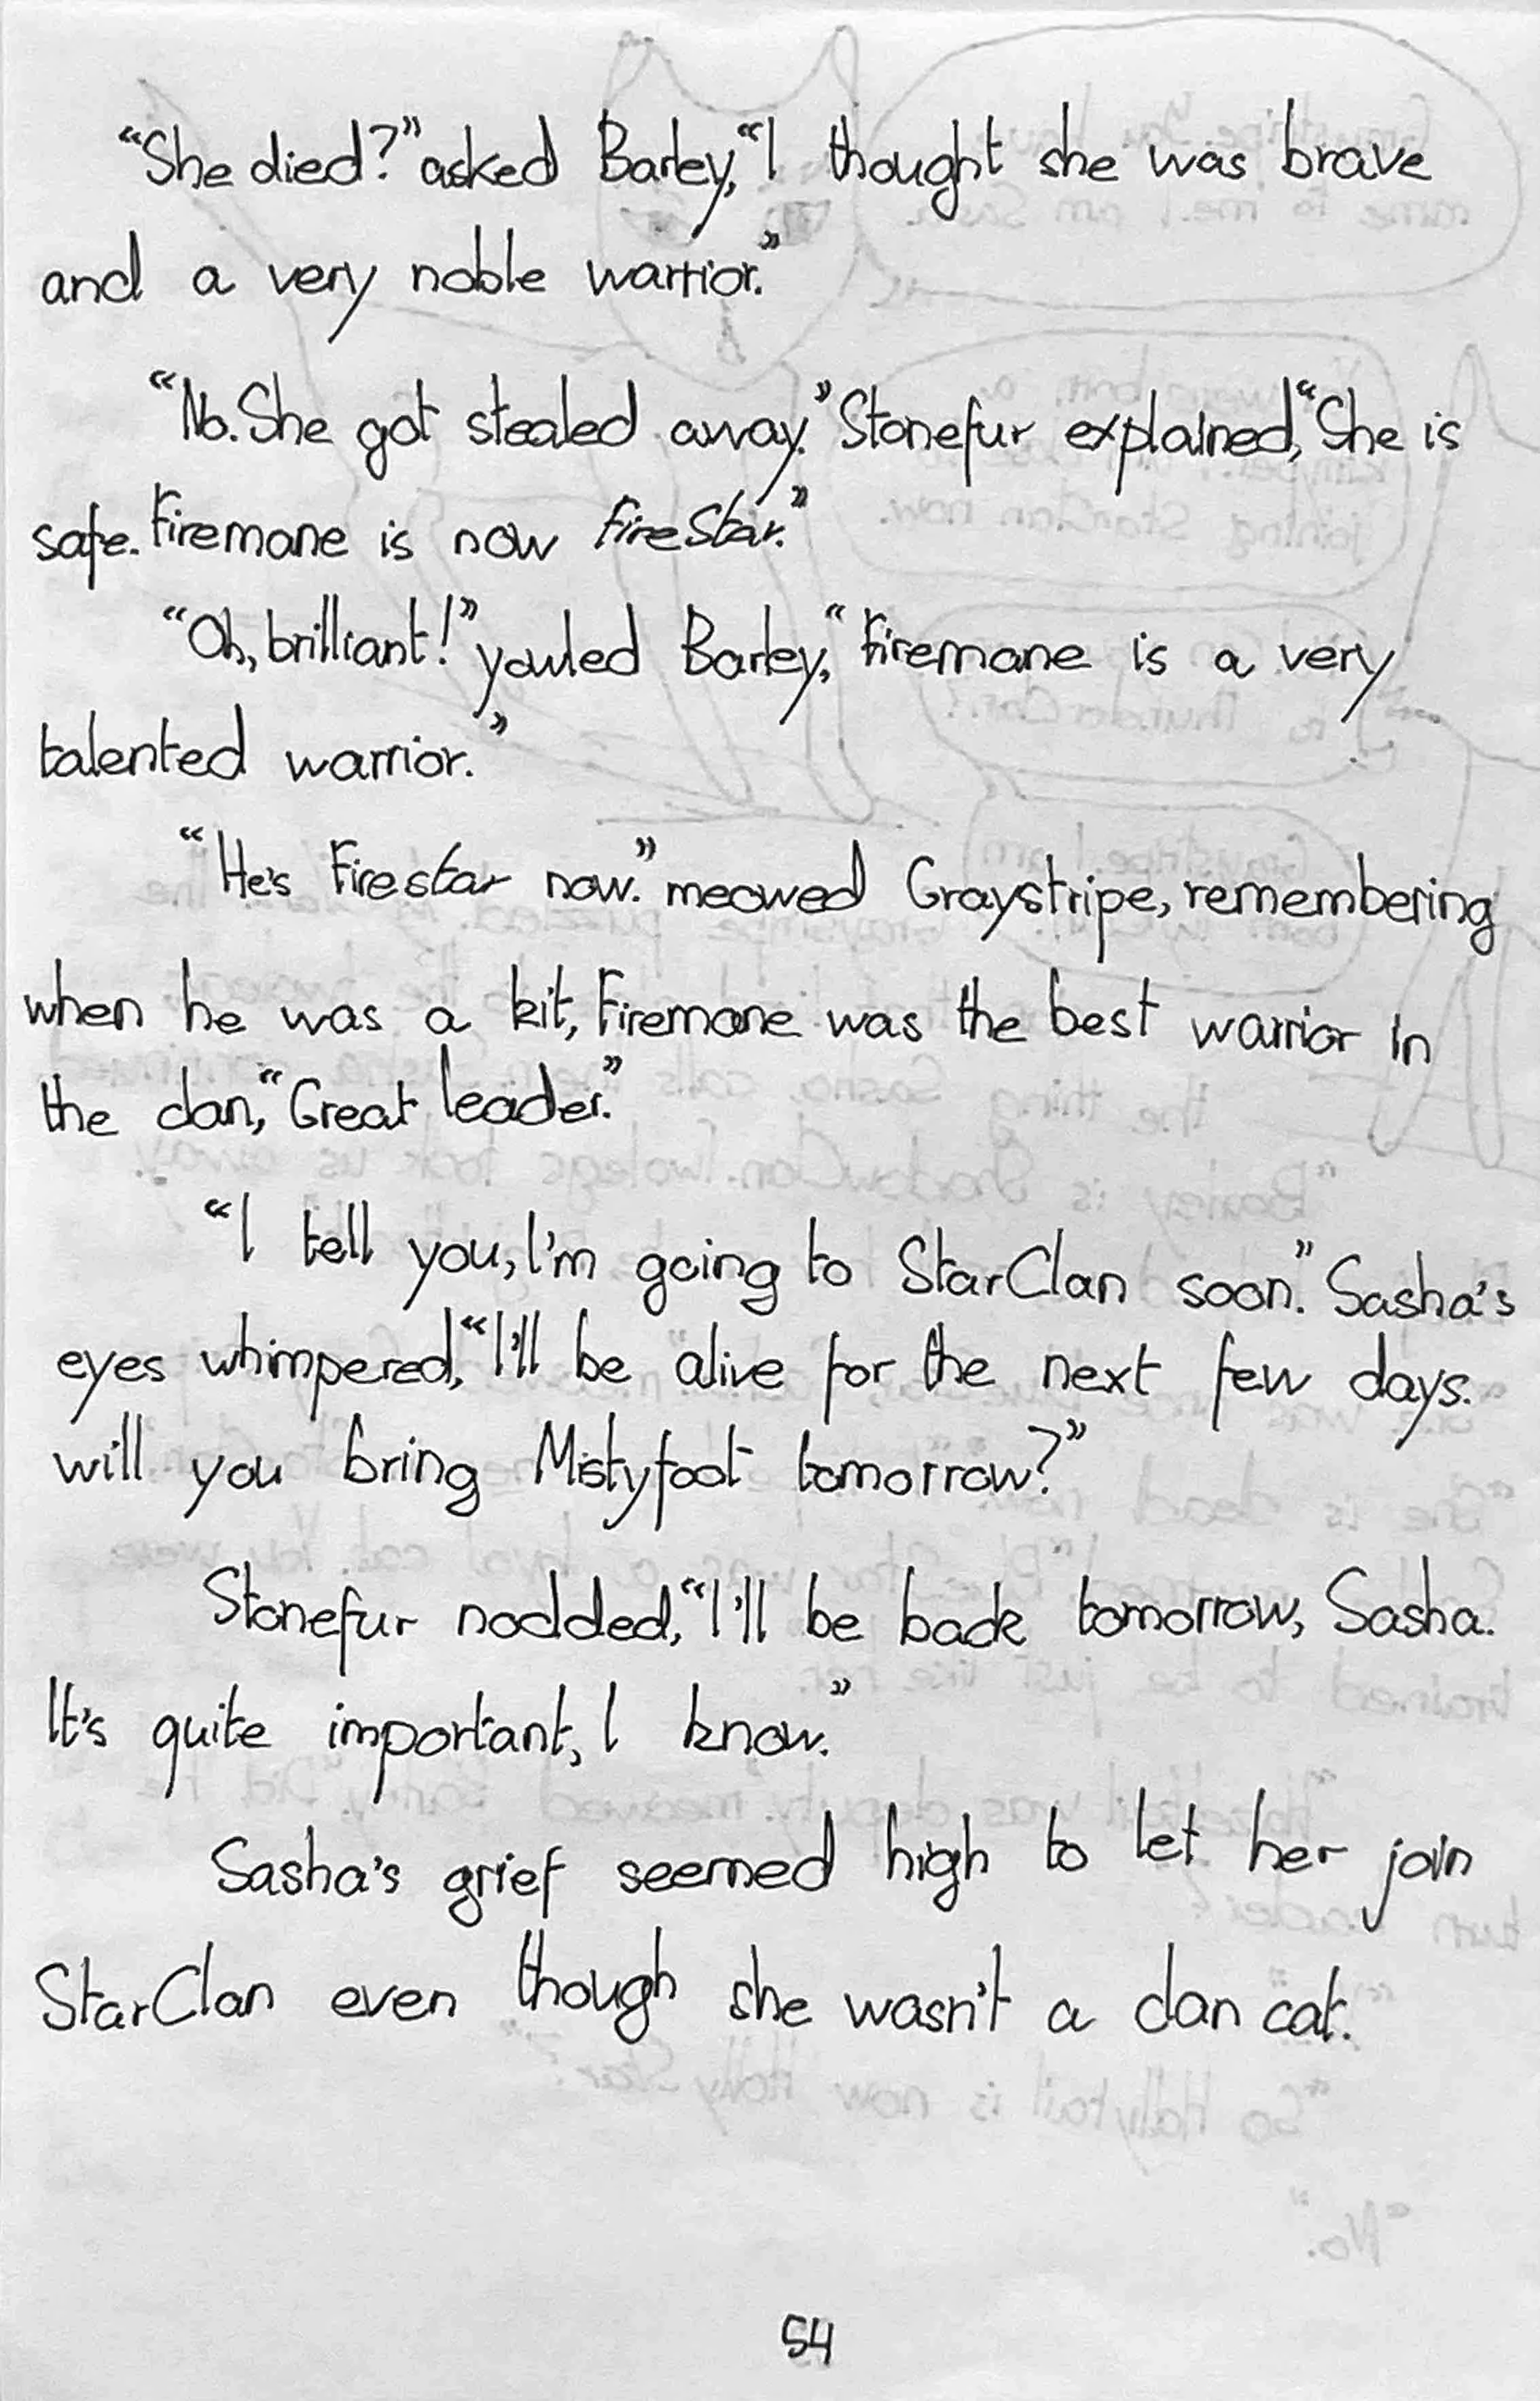 “She died?” asked Barley, “I thought she was brave
and a very noble warrior.”
“No. She got stealed away.” Stonefur explained, “She is
safe. Firemane is now FireStar.”
“Oh, brilliant!” yowled Barley, “Firemane is a very
talented warrior.”
“He's Firestar now.” meowed Graystripe, remembering
when he was a kit, Firemane was the best warrior in
the clan, “Great leader.”
“I tell you, I'm going to StarClan soon.” Sasha's
eyes whimpered, “I'll be alive for the next few days.
will you bring Mistyfoot tomorrow?”
Stonefur nodded, “I'll be back tomorrow, Sasha.
It's quite important, I know.”
Sasha's grief seemed high to let her join
StarClan even though she wasn't a clan cat.
54